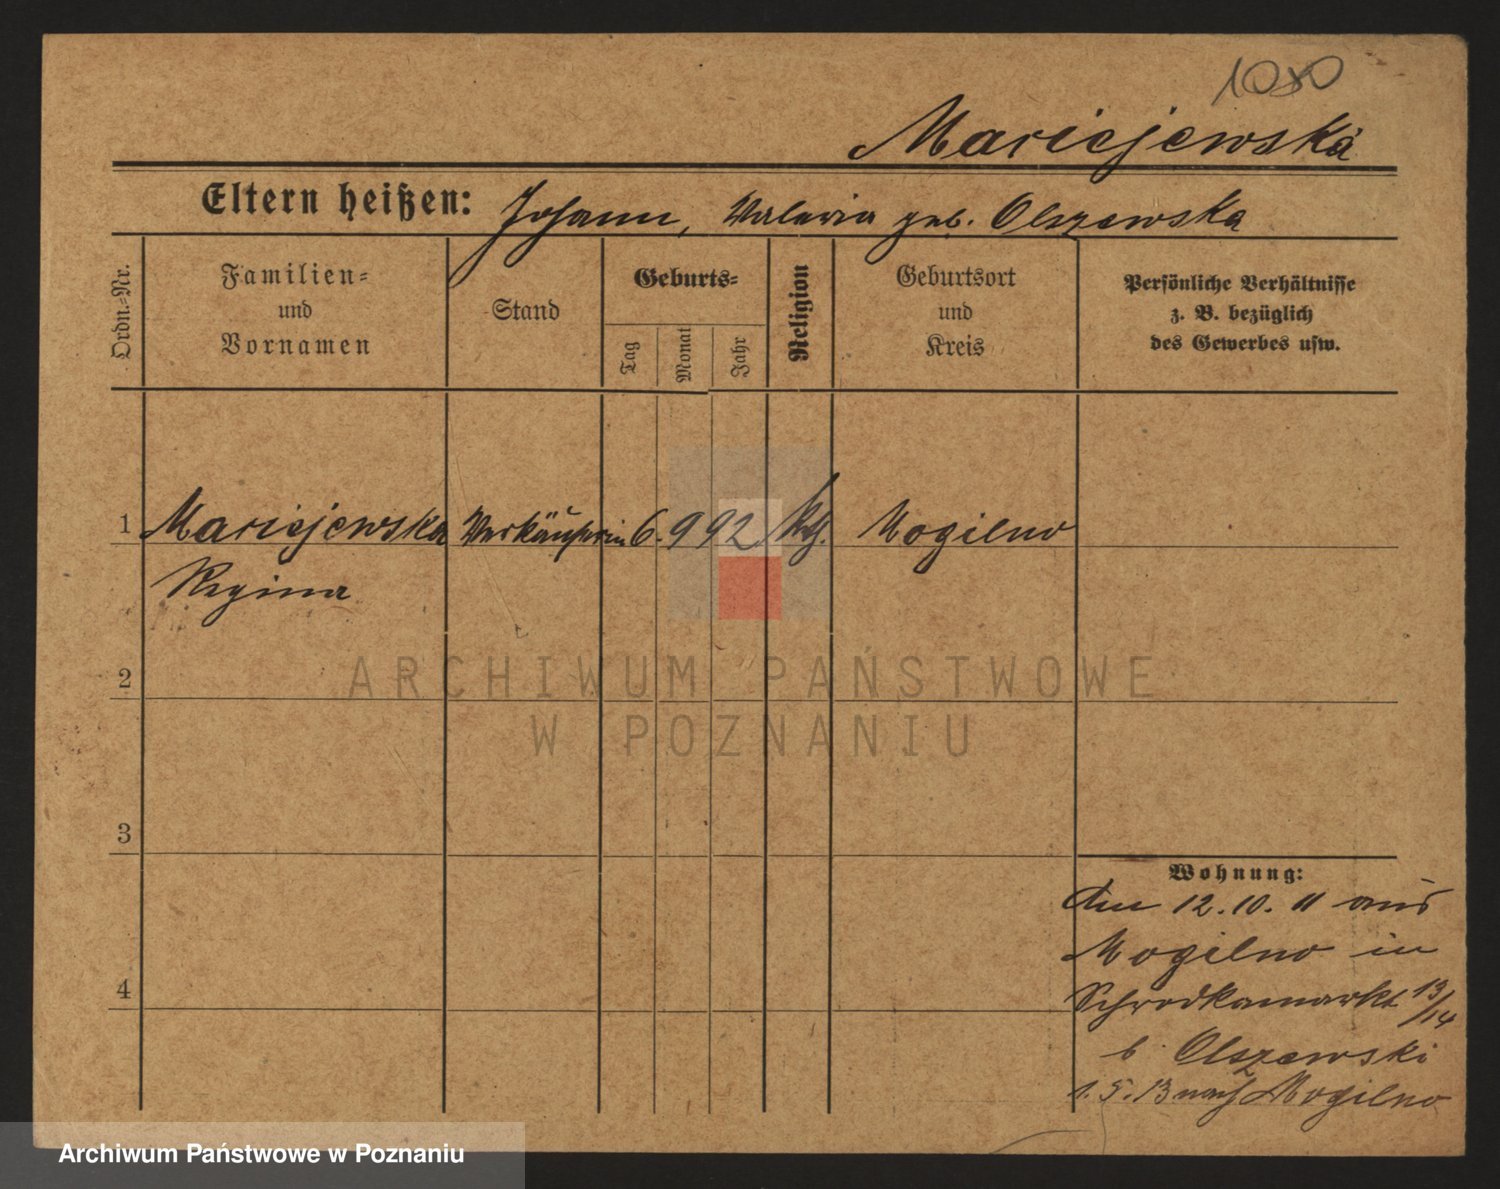 1080
Maciejewska
Eltern heißen: Johann, Valeria geb. Olszewska
Ordn.-Nr.
Familien-
und
Vornamen
Stand
Geburts-
Tag
Monat
Jahr
Religion
Geburtsort
und
Kreis
Persönliche Verhältnisse
z. B. bezüglich
des Gewerbes usw.
1 Maciejewska Verkäuferin 6. 9 92 kth. Mogilno
Regina
2
3
4
Wohnung:
den 12.10.11 aus
Mogilno in
Schrodkamarkt 13/14
b. Olszewski
1.5.13 nach Mogilno
ARCHIWUM PAŃSTWOWE
W POZNANIU
Archiwum Państwowe w Poznaniu